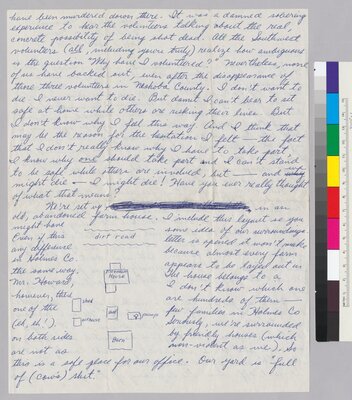 have been murdered down there. It was a damned sobering
experience to hear the volunteers talking about the real,
concrete possibility of being shot dead. All the Southwest
volunteers (all, including yours truly) realize how ambiguous
is the question "Why have I volunteered?" Nevertheless, none
of us have backed out, even after the disappearance of
those three volunteers in Neshoba County. I don't want to
die. I never want to die. But damnit I can't bear to sit
safe at home while others are risking their lives. But
I don't know why I feel this way and I think that
may be the reason for the hesitation I felt — the fact
that I don't really know why I have to take part.
I know why one should take part and I can't stand
to be safe while others are involved, but — and
might die — I might die! Have you ever really thought
of what that means.
We're set up in an
old, abandoned farm house. I include this layout so you
might have some idea of our surroundings.
Even if this letter is opened it won't make
any difference because almost every farm
in Holmes Co. appears to be layed out in
the same way. The house belongs to a
Mr. Howard, I don't know which one
however, there are hundreds of them —
one of the few families in Holmes Co
(eh, eh!). Seriously, we're surrounded
on both sides by friendly houses (which
are not as non-violent as we). So
this is a safe place for our office. Our yard is "full
of (cow's) shit."
dirt road
Freedom
House
shed
outhouse
Barn